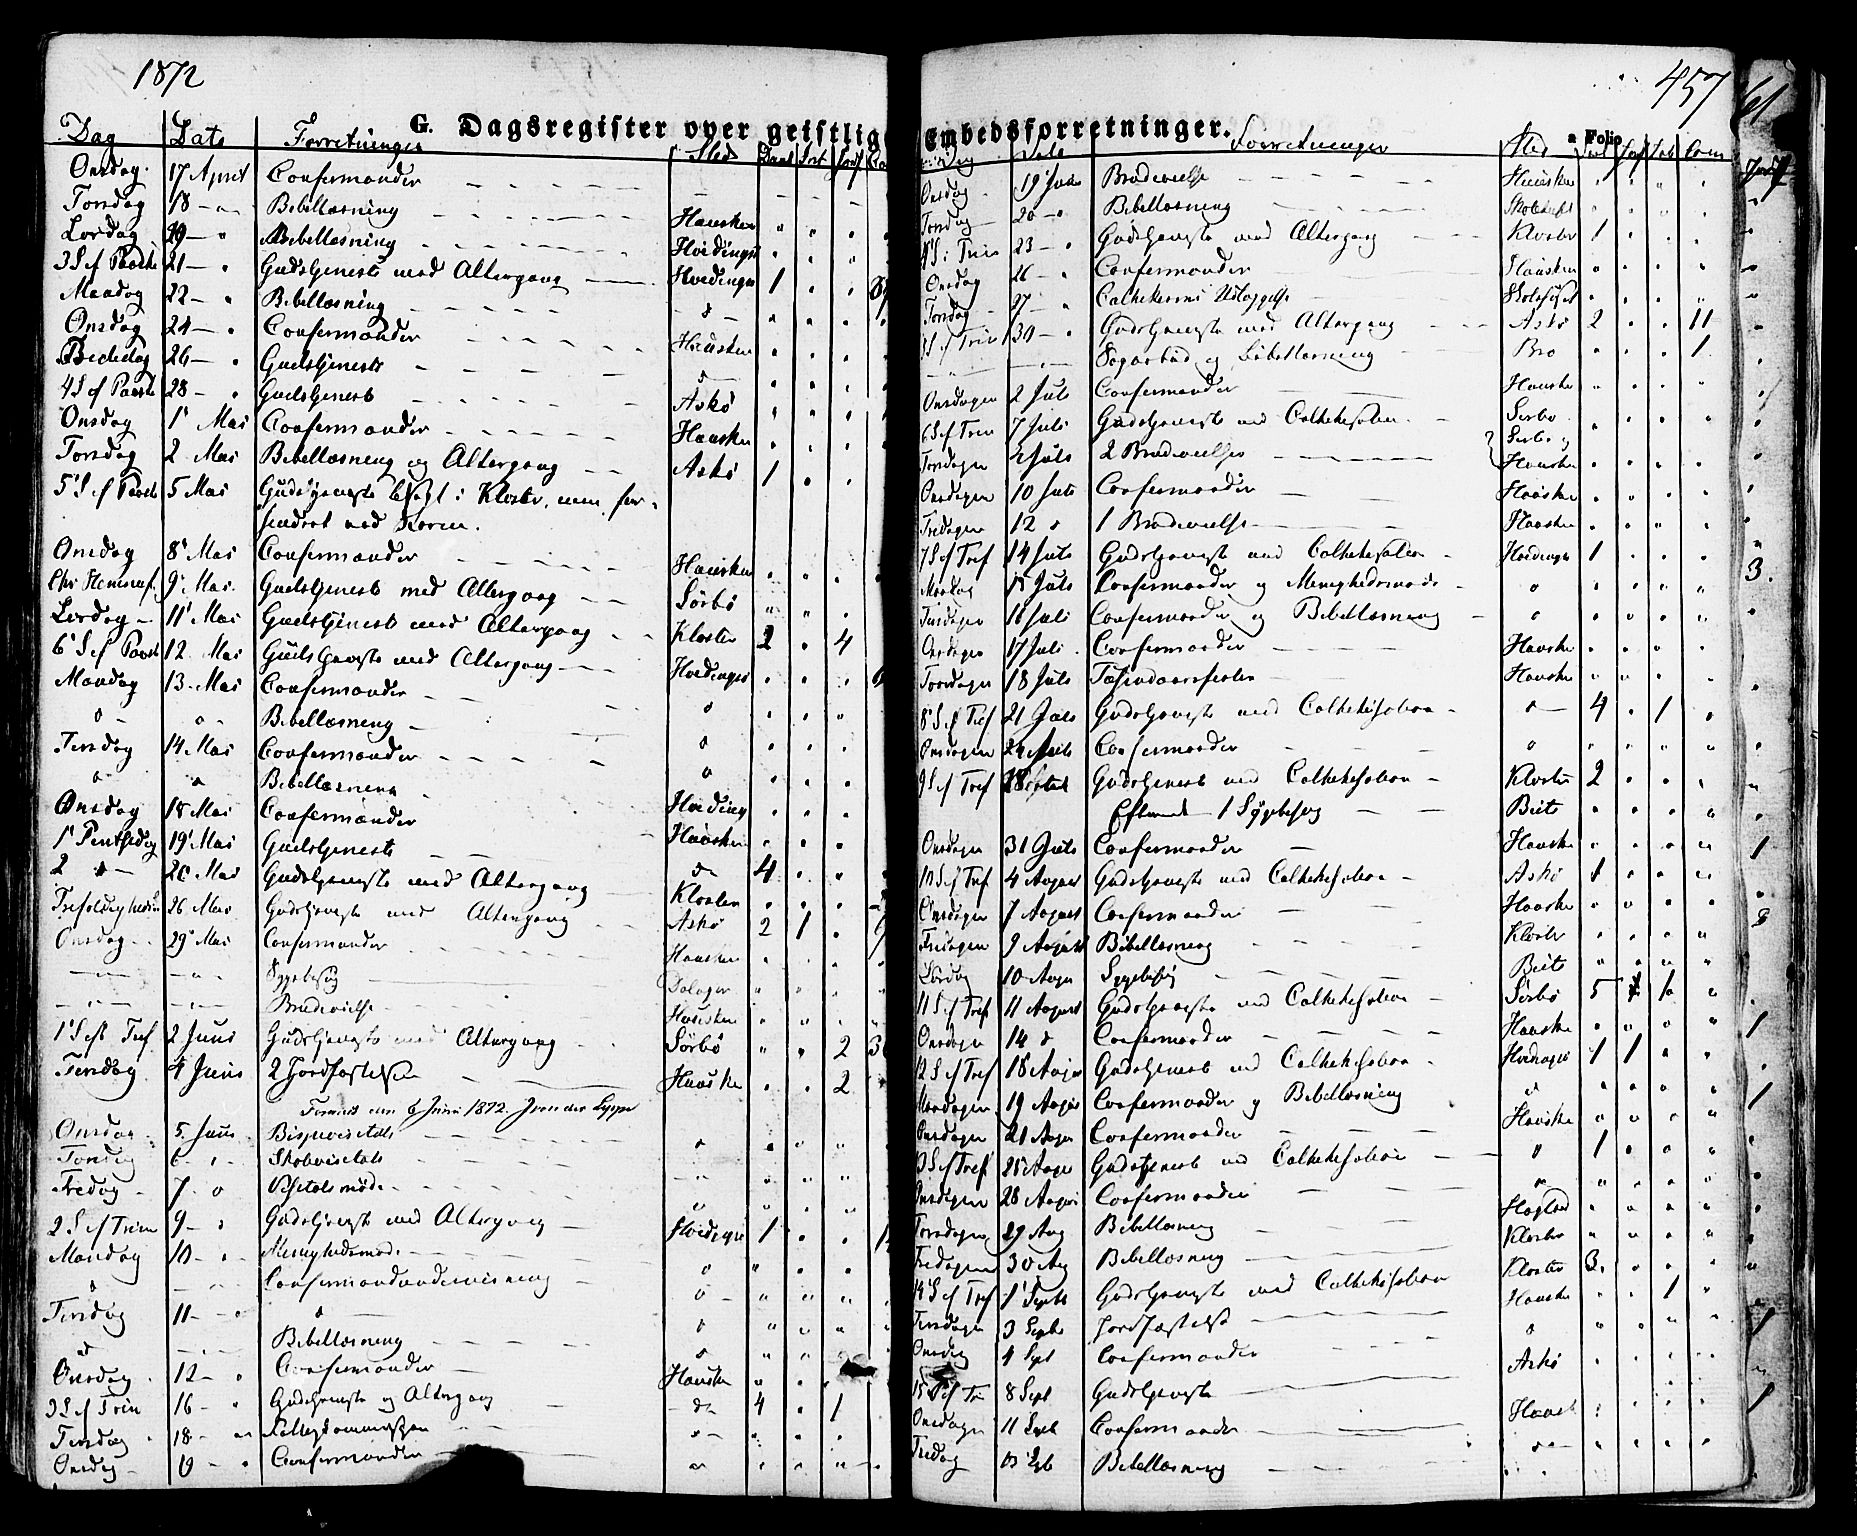 1872
G. Dagsregister over geistlig
Dag Dato Forretninger Sted Daab Jord
Onsdag 17 April Confermander
Torsdag 18 — " Bibellæsning Hausken
Lørdag 20 " Bibellæsning Hvidingsø
3 S ef Paaske 21 — " Gudstjeneste med Altergang Hvidingsø 1
Mandag 22 — " Bibellæsning
Onsdag 24 — " Confermander Hausken
Bededag 26 — " Gudstjeneste
4 S ef Paaske 28 — " Gudstjeneste Askø
Onsdag 1 Mai Confermander Hausken
Torsdag 2 Mai Bibellæsning og Altergang Askø 1
5 S ef Paaske 5 Mai Gudstjeneste i Kloster, men for-
hindret ved Storm.
Onsdag 8 Mai Confermander Hausken
Chr Himmelf. 9 Mai Gudstjeneste med Altergang Sørbø
Lørdag — 11 Mai Gudstjeneste med Altergang Kloster 2 4
6 S ef Paaske 12 Mai Gudstjeneste med Altergang Hvidingsø
Mandag 13 Mai Confermander
" — " Bibellæsning
Tirsdag 14 Mai Confermander
" " Bibellæsning
Onsdag 15 Mai Confermander Hviding
1 Pintsedag 19 Mai Gudstjeneste Hausken
2 — 20 Mai Gudstjeneste med Altergang 4 Kloster
Trefoldighedsøn 26 Mai Gudstjeneste med Altergang Askø 2 1
Onsdag 29 Mai Confermander Hausken
Sygebesøg
Brudevielse Hausken
1 S ef Tref 2 Juni Gudstjeneste med Altergang Sørbø 2
Tirsdag 4 Juni 2 Jordfæstelser Hausken 2
6 Juni 1872.
Onsdag 5 Juni Bispevisitats
Torsdag 6 " Skolevisitats
Fredag 7 " Visitatsmøde
2 S ef Trin 9 — " Gudstjeneste med Altergang Hvidingsø 1
Mandag 10 — " Menighedsmøde
Confermandundervisning
Tirsdag 11 — "
Bibellæsning
Onsdag 12 — Confermander Hausken
3 S ef Trin 16 — " Gudstjeneste og Altergang 4 1
Tirsdag 18 — " Fattigkommission
Onsdag 19 " Confermander
457
Embedsforretninger.
a Folio
Dato Forretninger Sted
Onsdag 19 Juni Brudevielse Hausken
Torsdag 20 — " Bibellæsning
4 S. i Trin 23 — " Gudstjeneste med Altergang Kloster 1
Onsdag 26 — " Confermander Hausken
Torsdag 27 — " Skolehuset
5 S ef Trin 30 — " Gudstjeneste med Altergang Askø 2 11
Sognebud og Bibellæsning Bro 1
Onsdagen 2 Juli Confermander Hausken
6 S ef Trin 7 Juli Gudstjeneste med Cathekisation Sørbø
Torsdagen Juli 2 Brudevielser Sørbø og
Hausken
Onsdagen 10 Juli Confermander Hauske
Fredagen 12 " 1 Brudevielse Hauske
7 S ef Tref 14 Juli Gudstjeneste med Cathekisation Hvidingsø 1
Mandag 15 Juli Confermander og Menighedsmøde "
Tirsdagen 16 Juli Confermander og Bibellæsning "
Onsdagen 17 Juli Confermander Hauske
Torsdagen 18 Juli Tusindaarsfesten Hauske
8 S ef Tref 21 Juli Gudstjeneste med Cathekisation 4 1
Onsdagen 24 Juli Confermander "
9 S ef Tref 28 Gudstjeneste med Cathekisation Kloster 2
1 Sygebesøg
Onsdagen 31 Juli Confermander Hauske
10 S ef Tref 4 August Gudstjeneste med Cathekisation Askø 1
Onsdagen 7 August Confermander Hauske
Fredagen 9 August Bibellæsning Kloster
Lørdag 10 Augu Sygebesøg
11 S ef Tref 11 August Gudstjeneste med Cathekisation Sørbø 5 1
Onsdagen 14 " Confermander Hauske
12 S ef Tref 18 Augu Gudstjeneste med Cathekisation Hvidingsø 1 1
Mandagen 19 Augus Confermander og Bibellæsning "
Onsdagen 21 Augu Confermander Hauske
13 S ef Tref 25 Augu Gudstjeneste med Cathekisation " 1
Onsdagen 28 August Confermander "
Torsdagen 29 Aug Bibellæsning
Fredagen 30 Aug Bibellæsning Kloster
14 S ef Tref 1 Septb Gudstjeneste med Cathekisation Kloster 3
Tirsdagen 3 Septb Jordfæstelse Hauske 1
Onsdag 4 Sept Confermander "
15 S ef Tri 8 Sept Gudstjeneste Askø
Onsdagen 11 Septb Confermander Hausk
Fredag 13 Sept Bibellæsning
61
3.